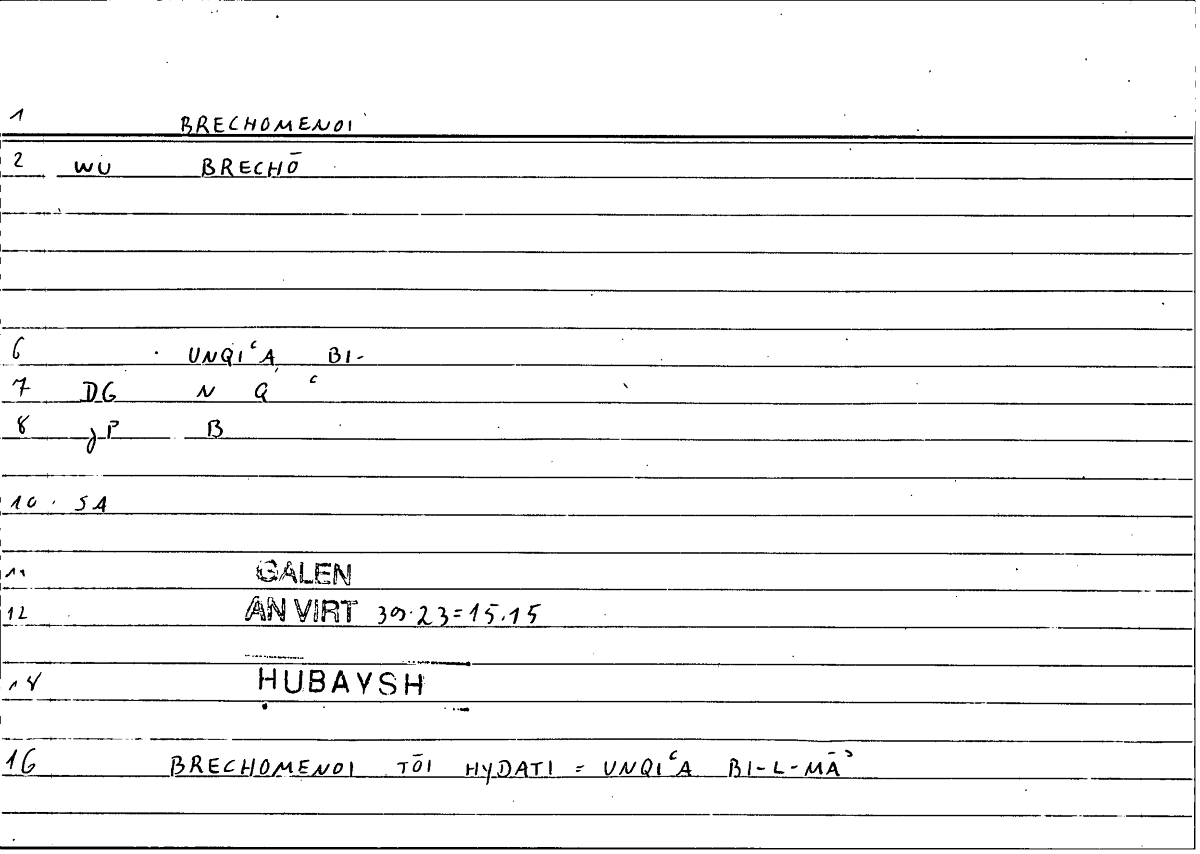 1 BRECHOMENOI
2 WU BRECHŌ
6 UNQIʿA BI-
7 DG N Q ʿ
8 JP B
10 SA
11 GALEN
12 AN VIRT 39.23=15.15
14 HUBAYSH
16 BRECHOMENOI TŌI HYDATI = UNQIʿA BI-L-MĀʾ